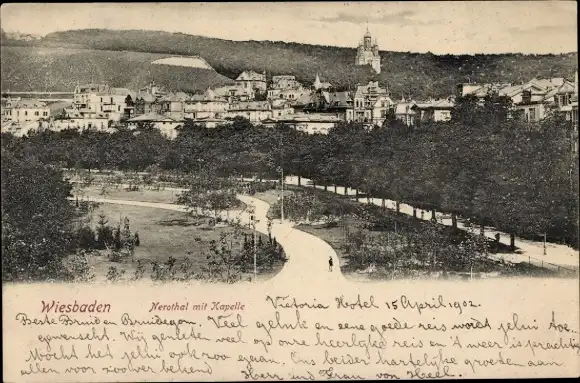 Wiesbaden
Nerothal mit Kapelle
Victoria Hotel 15 April 1902.
Beste Bruid en Bruidegom. Veel geluk en eene goede reis wordt jelui toe-
gewenscht. Wij genieten veel op onze heerlijke reis en 't weer is prachtig
Mocht het jelui ook zoo gaan. Ons beider hartelijke groeten aan
allen voor zoover bekend Herr und Frau von